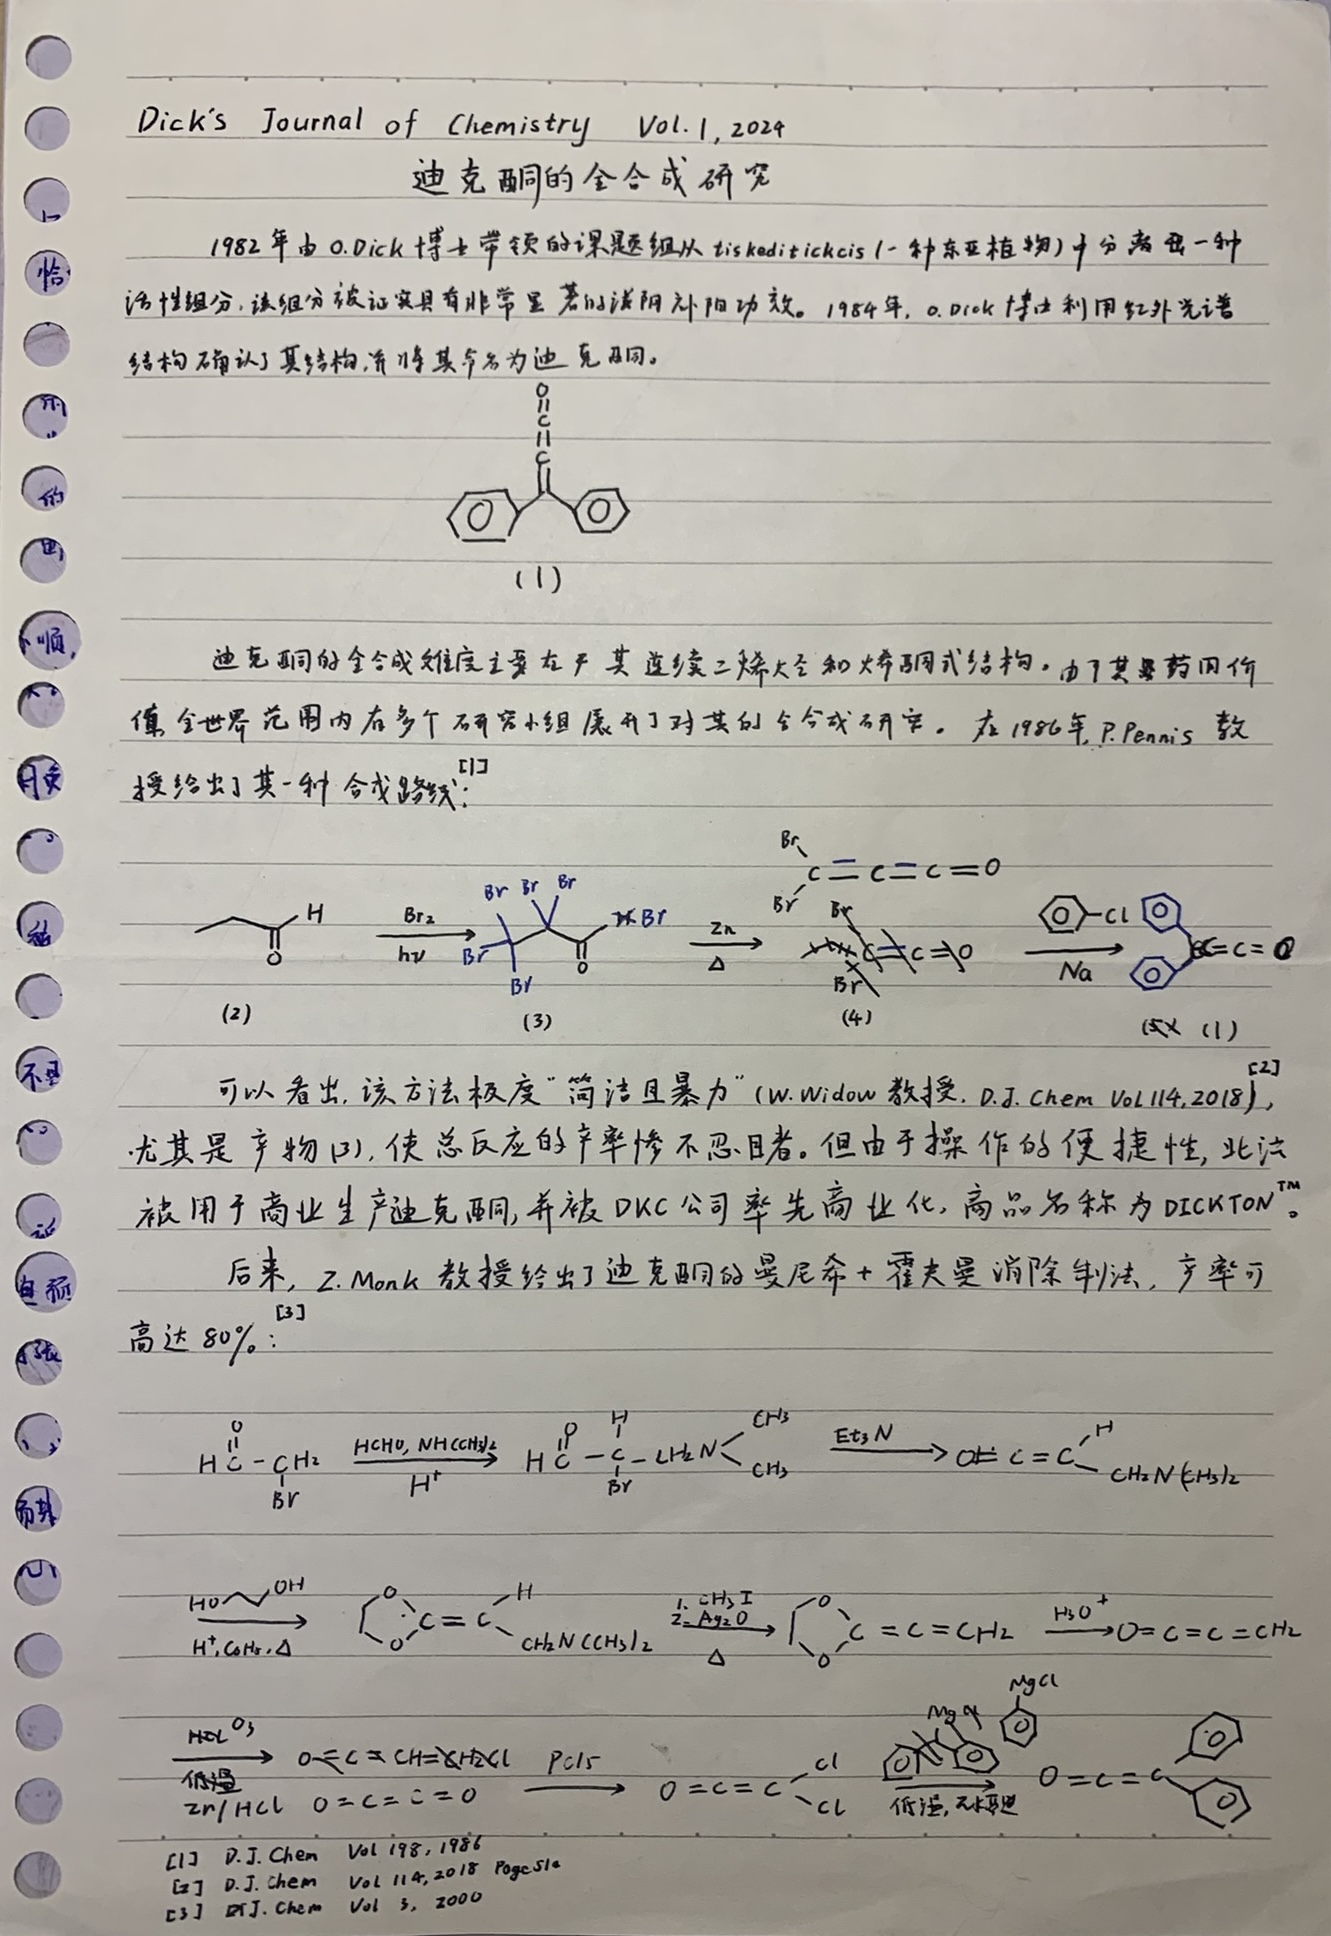 Dick's Journal of Chemistry Vol.1, 2024
迪克酮的全合成研究
1982年由O.Dick博士带领的课题组从tiskeditickcis(一种东亚植物)中分离出一种
活性组分,该组分被证实具有非常显著的滋阴补阳功效。1984年,O.Dick博士利用红外光谱
结构确认了其结构,并将其命名为迪克酮。
O
C
C
(1)
迪克酮的全合成难度主要在于其连续二烯烃和烯酮式结构。由于其药用价
值,全世界范围内有多个研究小组展开了对其的全合成研究。在1986年,P.Pennis教
授给出了其一种合成路线[1]:
Br Br C=C=C=O
H Br2 hν Br Br Br Br Br Br O Zn △ Cl Na C=C=O
(2) (3) (4) (1)
可以看出,该方法极度"简洁且暴力"(W.Widow教授,D.J.Chem Vol 114,2018)[2],
尤其是产物(3),使总反应的产率惨不忍目睹。但由于操作的便捷性,此法
被用于商业生产迪克酮,并被DKC公司率先商业化,商品名称为DICKTON™。
后来,Z.Monk教授给出了迪克酮的曼尼希+霍夫曼消除制法,产率可
高达80%[3]:
O HC-CH2 Br HCHO, NH(CH3)2 H+ O HC-C-CH2N H Br CH3 CH3 Et3N O=C=C H CH2N(CH3)2
HO OH H+, C6H6, △ O O C=C H CH2N(CH3)2 1. CH3I 2. Ag2O △ O O C=C=CH2 H3O+ O=C=C=CH2
O3 Zn/HCl O=C=C=O PCl5 O=C=C Cl Cl MgCl 低温, O=C=C
[1] D.J.Chem Vol 198, 1986
[2] D.J.Chem Vol 114, 2018 Page 51
[3] D.J.Chem Vol 3, 2000